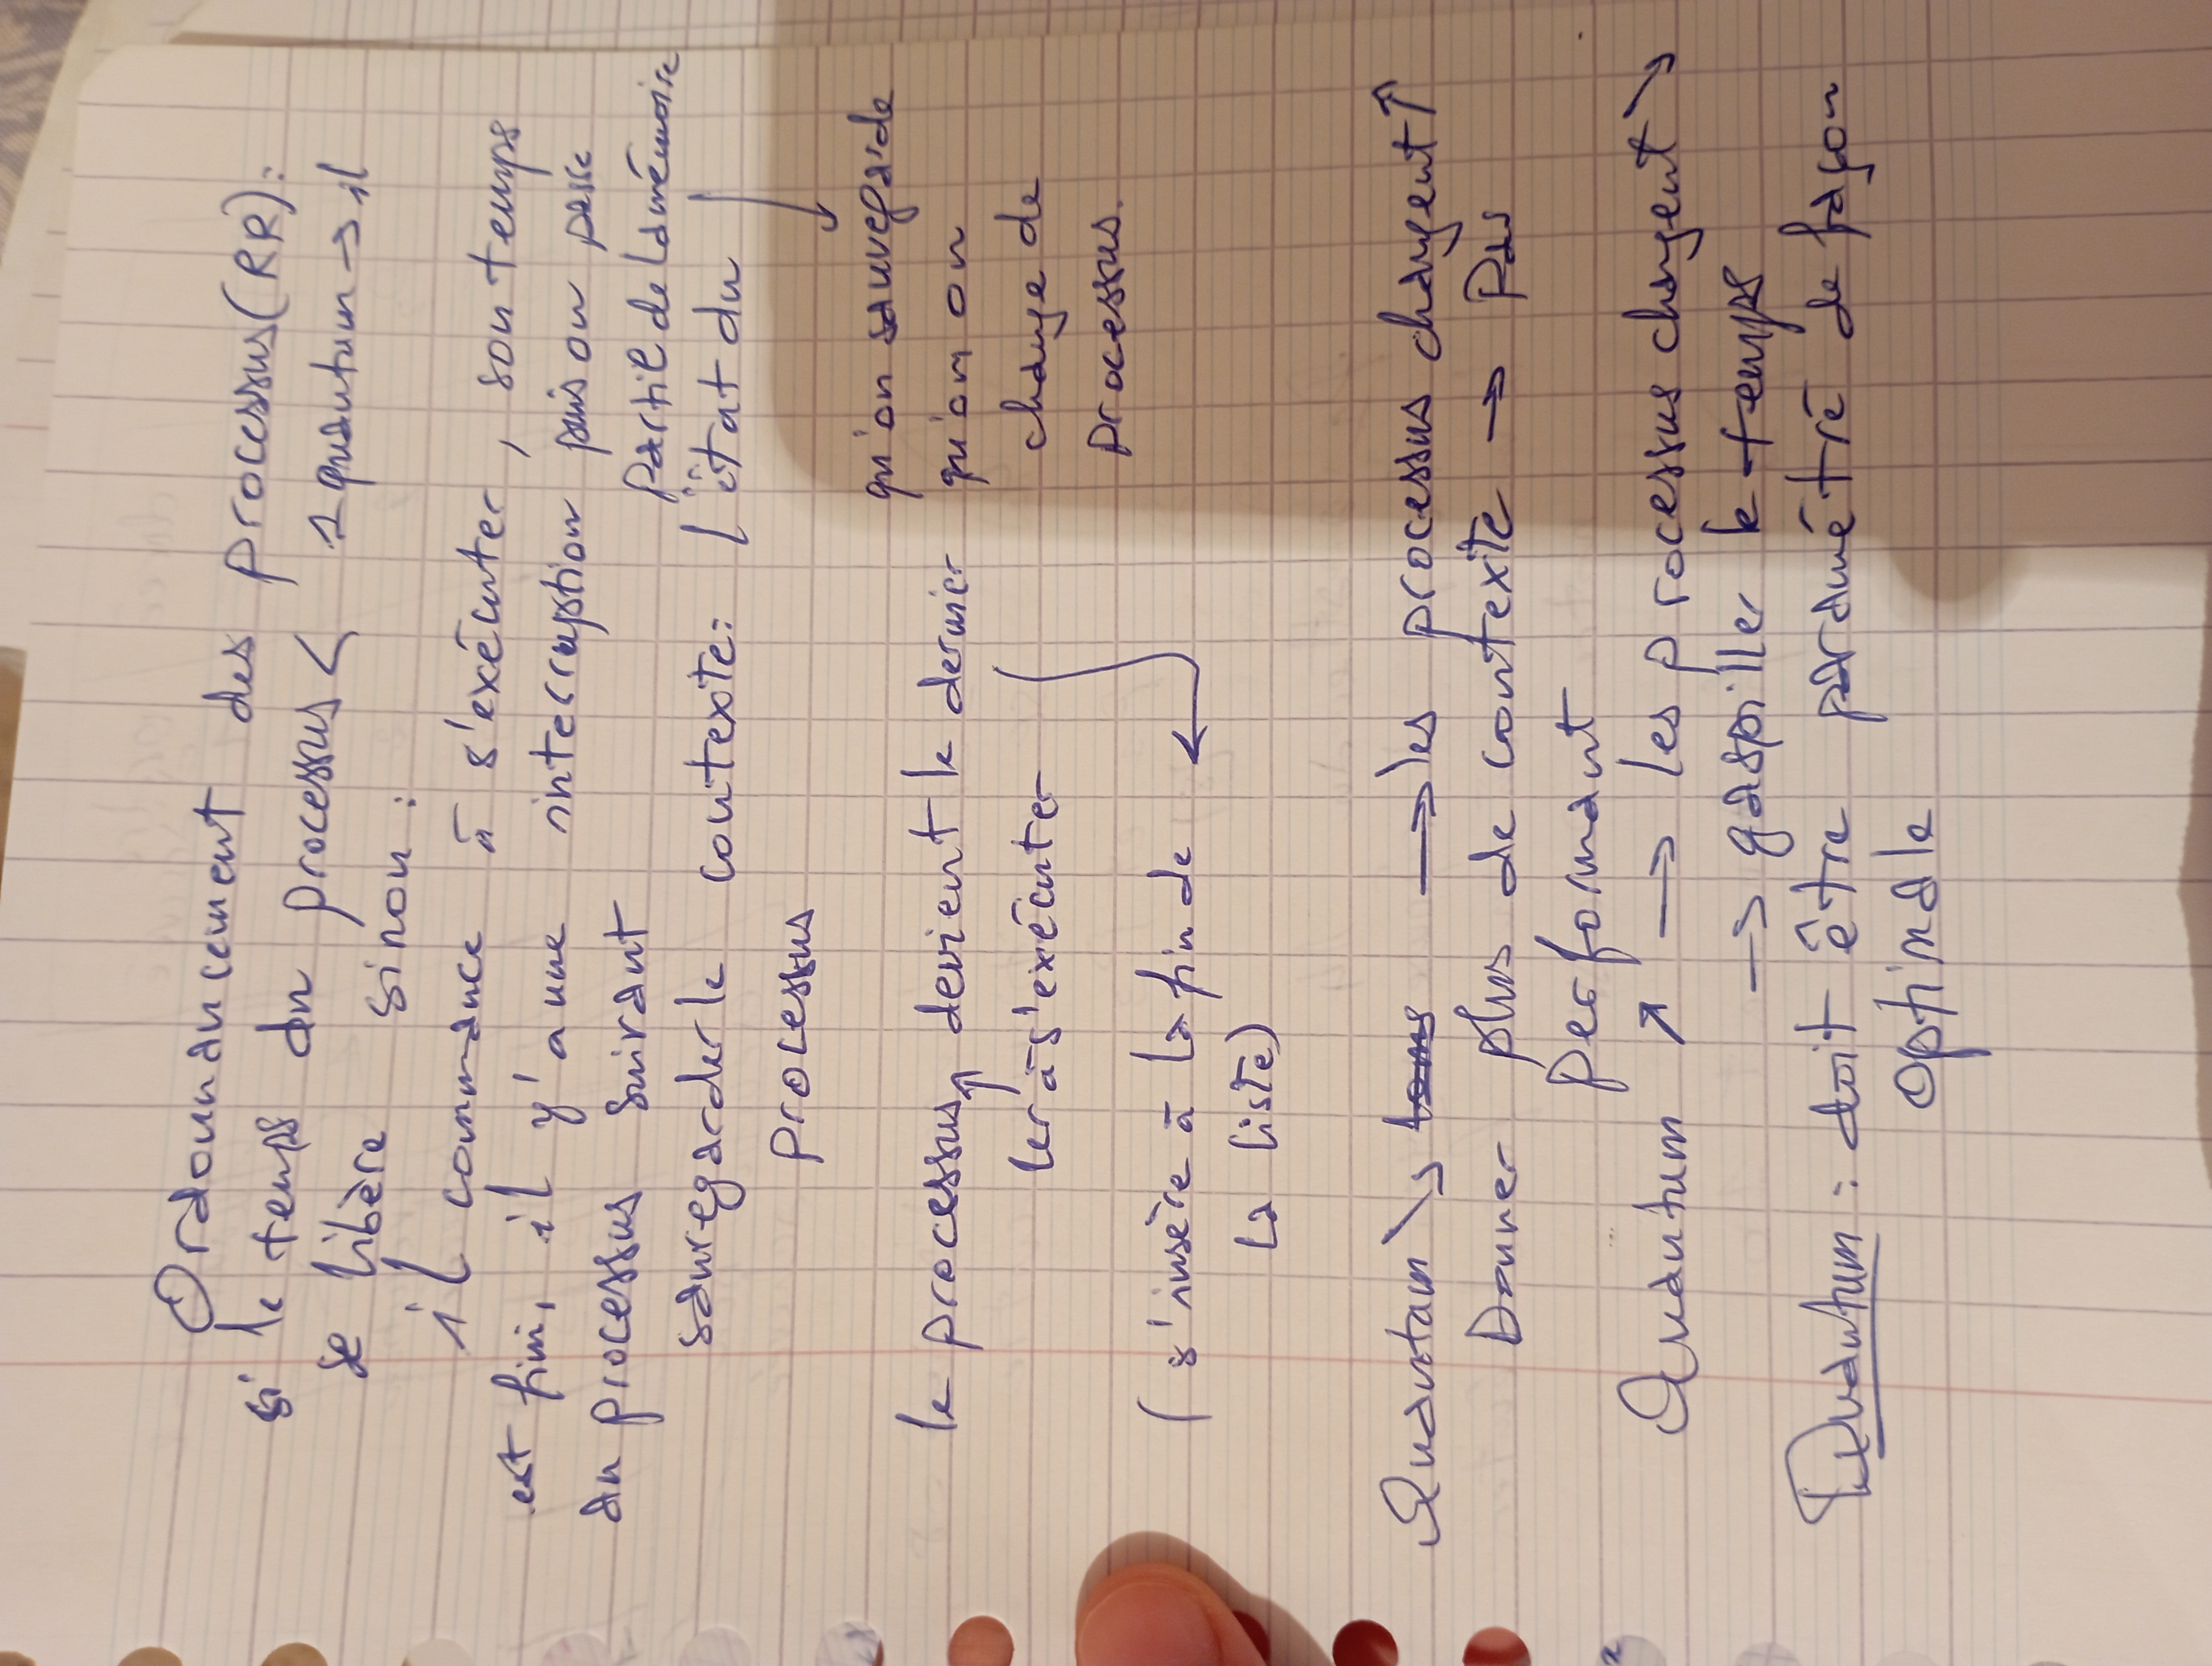 Ordounnancement des processus (RR):
si le temps du processus < 1 quantum → il
se libère sinon :
il commance à s'exécuter, son temps
est fini, il y'a une interruption puis on passe
au processus suivant
Partie de la mémoire
sauvegarder le contexte: l'état du
processus
qu'on sauvegarde
qu'on on
change de
processus.
le processus ↑ devient le dernier
1er à s'exécuter
( s'insère à la fin de
la liste)
Quantum ↘ → les processus changent ↑
Donner plus de contexte → Pas
performant
Quantum ↗ → les processus changent ↘
→ gaspiller le temps
Quantum : doit être paramétré de façon
optimale